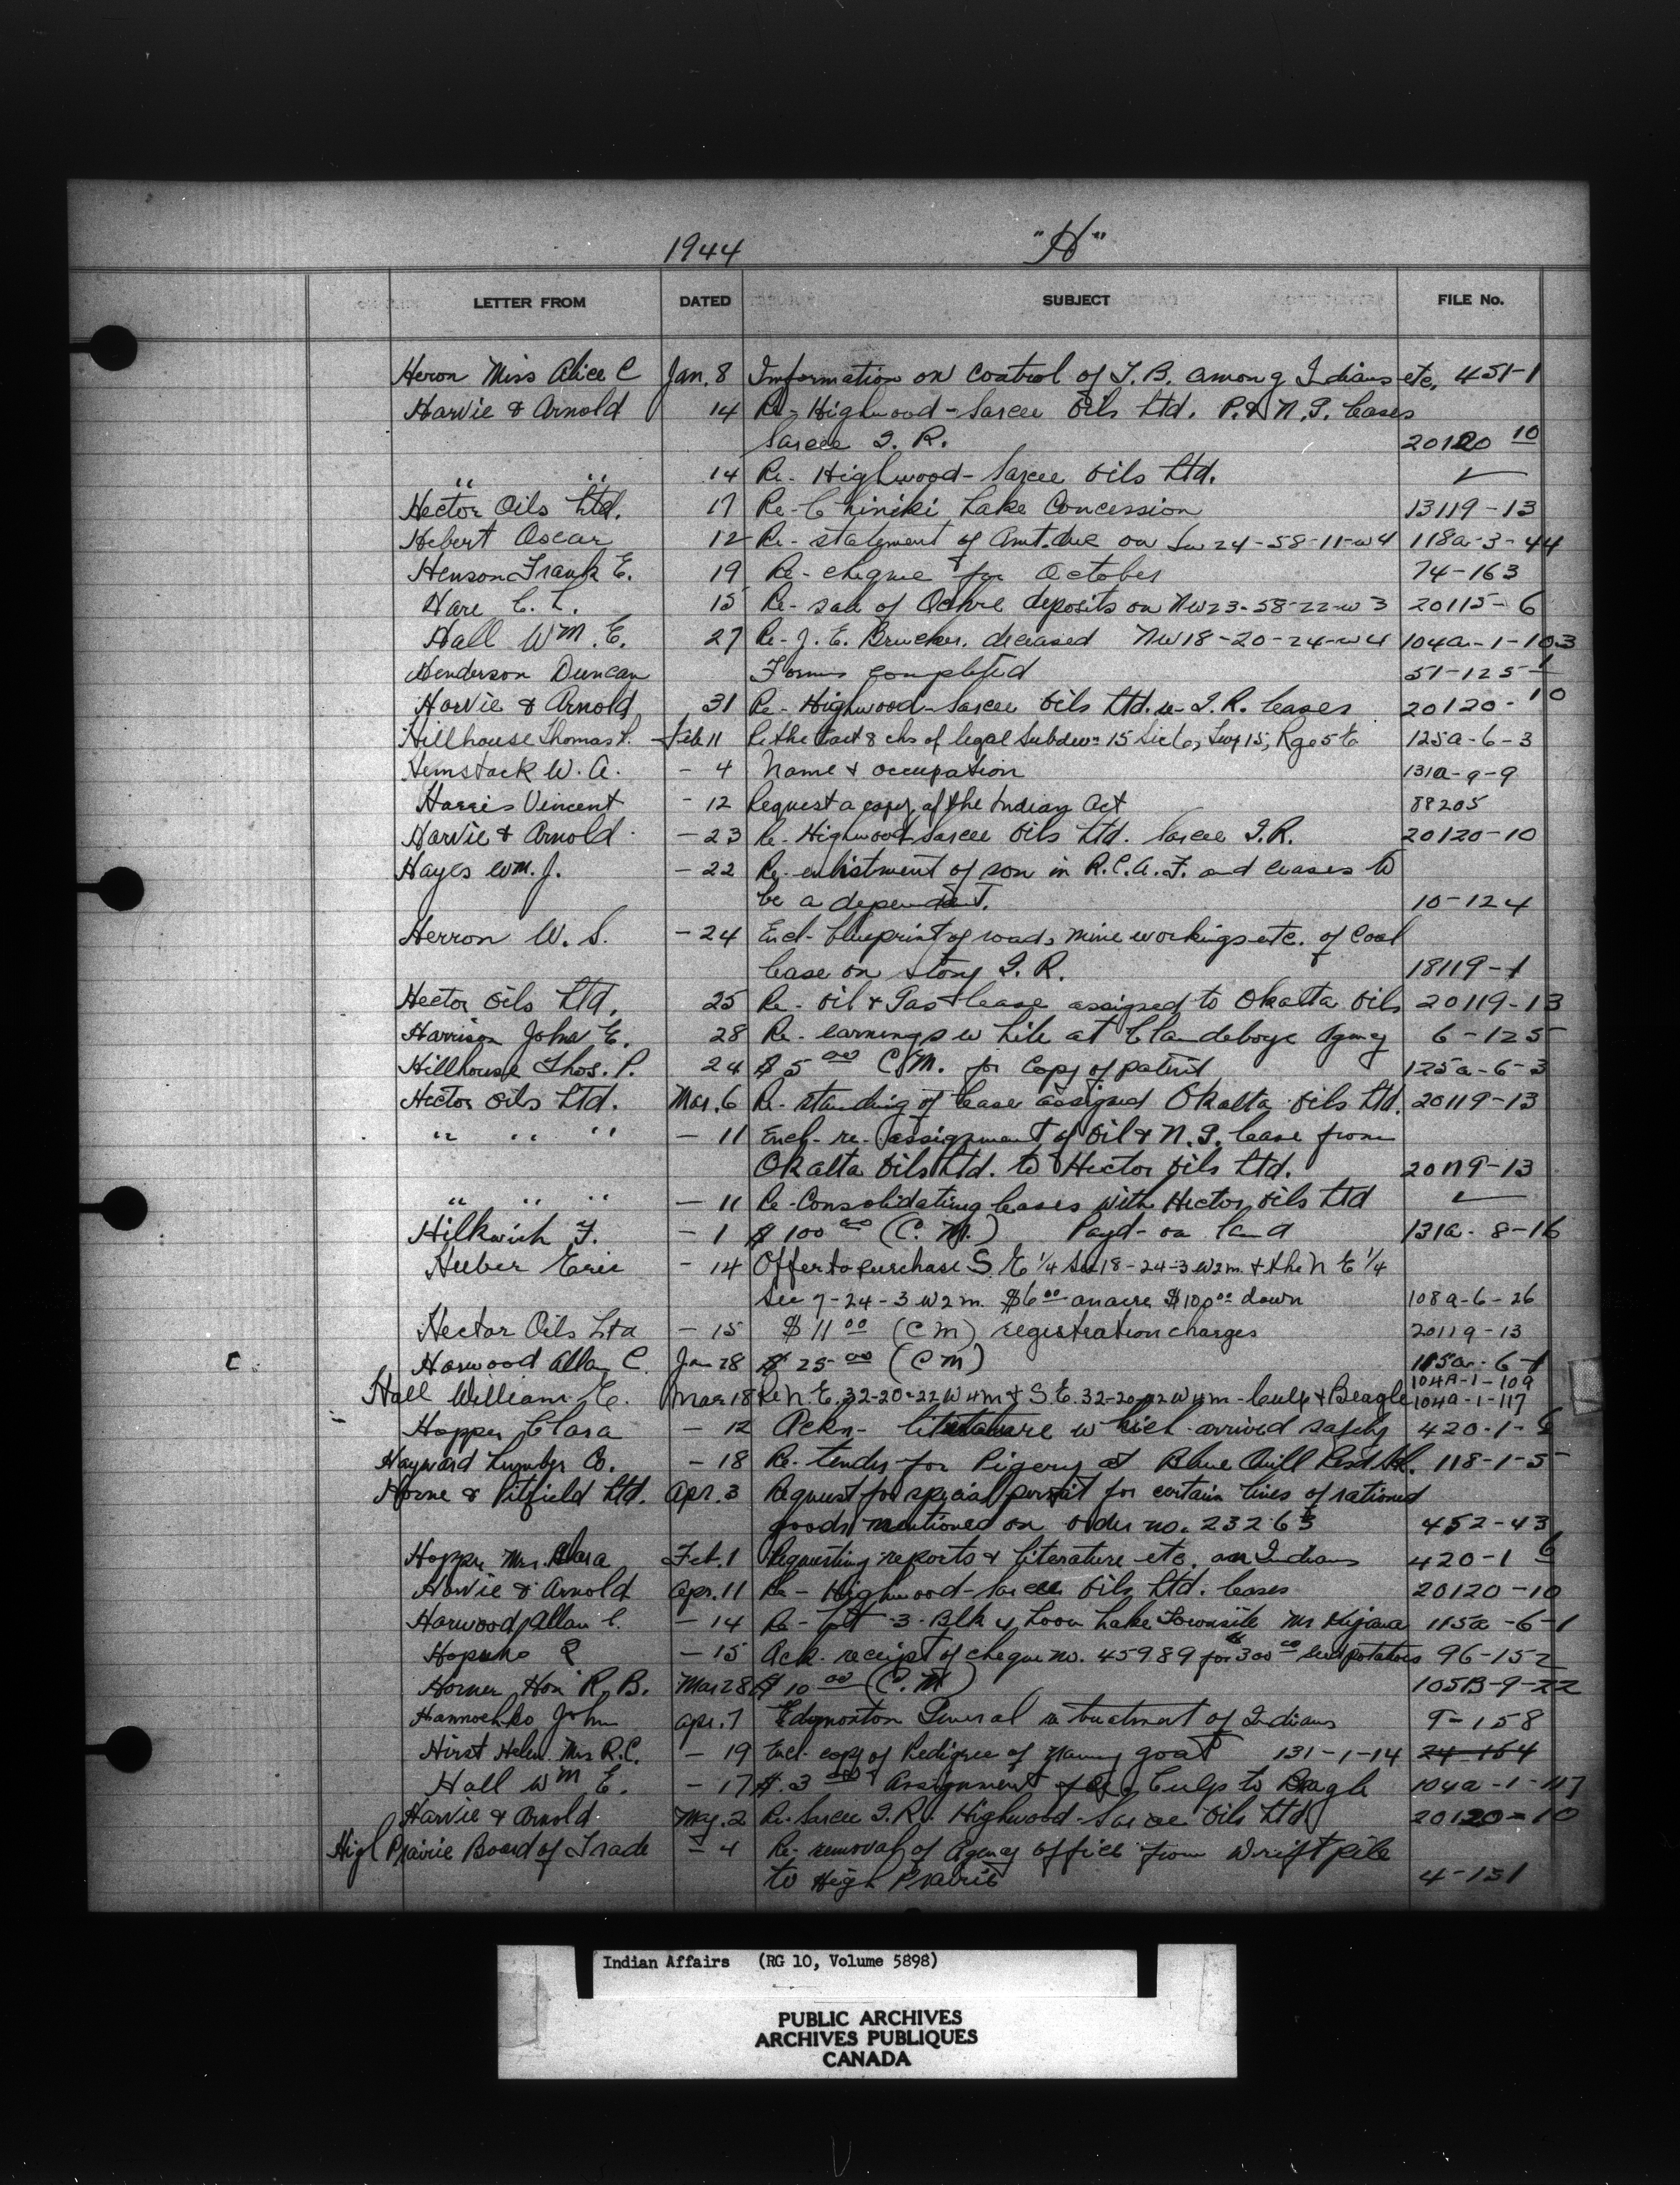 1944 "H"
LETTER FROM DATED SUBJECT FILE No.
Heron Miss Alice C Jan. 8 Information on Control of T.B. among Indians etc. 451-1
Harvie & Arnold 14 Re- Highwood-Sarcee Oils Ltd. P. & N.G. leases
Sarcee I.R. 20120 10
" " 14 Re- Highwood-Sarcee Oils Ltd. ✓
Hector Oils Ltd. 17 Re- Chiniki Lake Concession 13119-13
Hebert Oscar 12 Re- statement of Amt. due on Sw 24-58-11-w4 118a-3-44
Henson Frank E. 19 Re- cheque for October 74-163
Hare C. L. 15 Re- sale of Ochre deposits on NW23-58-22-w3 20115-6
Hall Wm. E. 27 Re- J. E. Brucker, deceased NW18-20-24-w4 104a-1-103
Henderson Duncan Forms completed 51-125-1
Harvie & Arnold 31 Re- Highwood-Sarcee Oils Ltd. re- I.R. leases 20120-10
Hillhouse Thomas P. Feb 11 Re the East 8 chs of legal Subdivn 15 Sec 6, Twp 15, Rge 5 E 125a-6-3
Hemstock W. A. - 4 Name & occupation 131a-9-9
Harris Vincent - 12 Request a copy of the Indian Act 88205
Harvie & Arnold - 23 Re- Highwood Sarcee Oils Ltd. Sarcee I.R. 20120-10
Hayes Wm. J. - 22 Re- enlistment of son in R.C.A.F. and ceases to
be a dependent. 10-124
Herron W. S. - 24 Encl- blueprint of roads, mine workings etc. of Coal
lease on Stony I.R. 18119-1
Hector Oils Ltd. 25 Re- Oil & Gas lease assigned to Okalta Oils 20119-13
Harrison John E. 28 Re- earnings while at Clandeboye Agency 6-125
Hillhouse Thos. P. 24 $5 00 C.M. for Copy of patent 125a-6-3
Hector Oils Ltd. Mar. 6 Re- standing of lease assigned Okalta Oils Ltd. 20119-13
" " " - 11 Encl- re- assignment of Oil & N.G. lease from
Okalta Oils Ltd. to Hector Oils Ltd. 20119-13
" " " - 11 Re- Consolidating leases with Hector Oils Ltd ✓
Hilkwich F. - 1 $100 00 (C.M.) Payt- on land 131a-8-16
Huber Eric - 14 Offer to purchase S.E 1/4 Sec 18-24-3 W2m. & the N E 1/4
Sec 7-24-3 W2m. $6 00 an acre $100 00 down 108a-6-26
Hector Oils Ltd - 15 $11 00 (CM) registration charges 20119-13
C. Harwood Allan C. Jan 28 $25 00 (CM) 115a-6-1
104A-1-109
Hall William E. Mar 18 Re N.E. 32-20-22 W4m & S E. 32-20-22 W4m- Culp & Beagle 104a-1-117
Hopper Clara - 12 Ackn- literature which arrived safely 420-1-6
Hayward Lumber Co. - 18 Re- tender for Pigery at Blue Quill Resd. Sch. 118-1-5
Horne & Pitfield Ltd. Apr. 3 Request for special permit for certain lines of rationed
goods mentioned on order no. 23263 452-43
Hopper Mrs. Clara Feb. 1 Requesting reports & literature etc. on Indians 420-1 6
Harvie & Arnold Apr. 11 Re- Highwood-Sarcee Oils Ltd. leases 20120-10
Harwood Allan C. - 14 Re- Lot 3- Blk 4 Loon Lake Townsite Mr 115a-6-1
- 15 Ack- receipt of cheque no. 45989 for $300 00 seed potatoes 96-152
Horner Hon R. B. Mar 28 $10 00 (C.M) 105B-9-22
Hannochko John Apr. 7 Edmonton General re treatment of Indians 9-158
Hirst Helen Mrs R.C. - 19 Encl- copy of Pedigree of nanny goat 131-1-14 24-164
Hall Wm E. - 17 $3 00 Assignment Culp to Beagle 104a-1-117
Harvie & Arnold May. 2 Re- Sarcee I.R. Highwood-Sarcee Oils Ltd 20120-10
High Prairie Board of Trade - 4 Re- removal of Agency office from Driftpile
to High Prairie 4-151
Indian Affairs (RG 10, Volume 5898)
PUBLIC ARCHIVES
ARCHIVES PUBLIQUES
CANADA